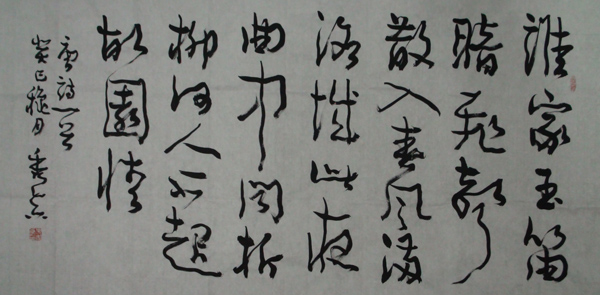 誰家玉笛
暗飛聲
散入春風滿
洛城此夜
曲中聞折
柳何人不起
故園情
唐詩一首
癸巳穐月